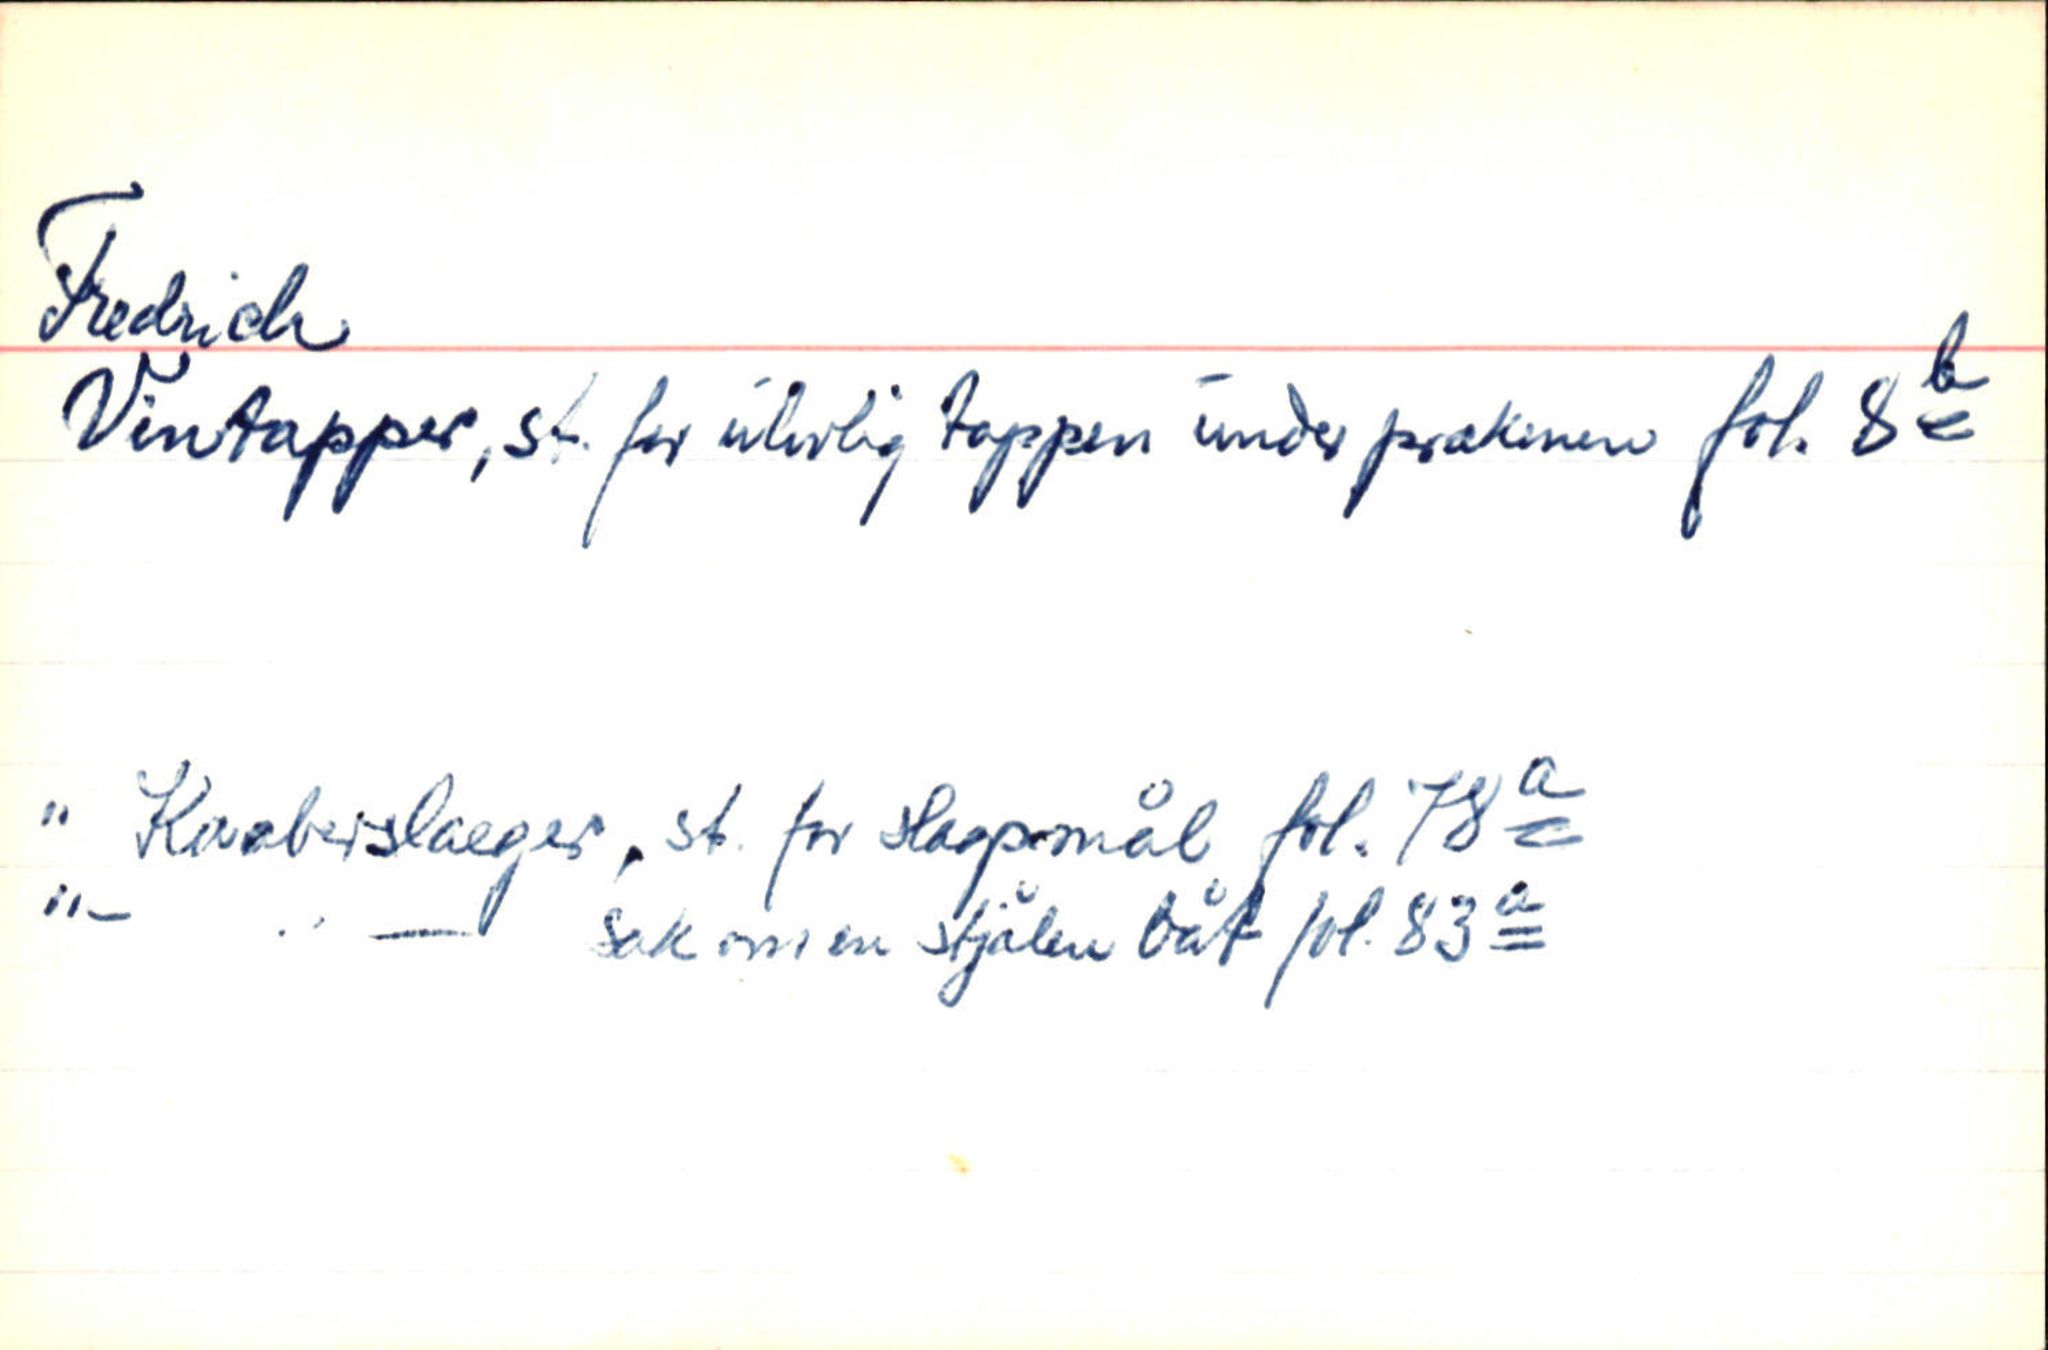 Fredrich
Vintapper, st. for ulovlig tappen under prækenen fol. 8 b
" Kaaberslaeger, st. for slagsmål fol. 78 a
"– " — sak om en stjålen båt fol. 83 a